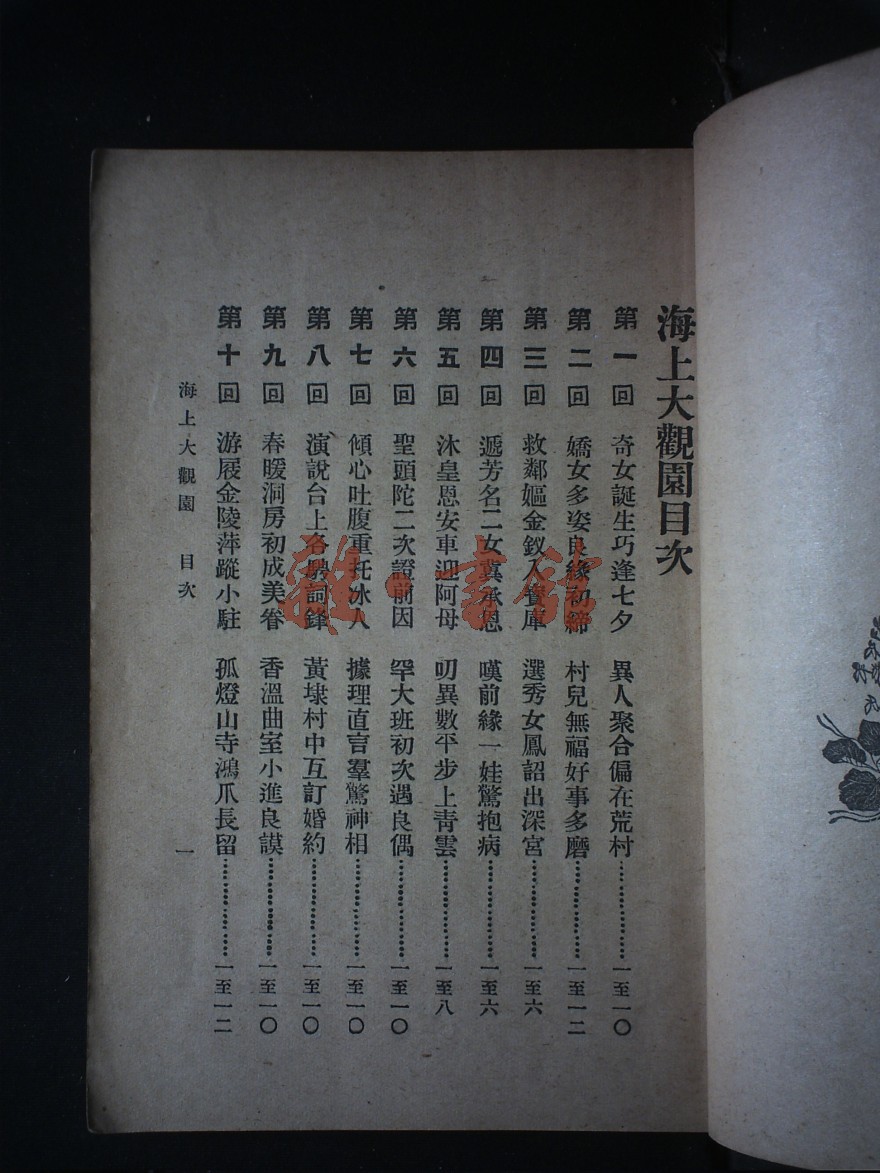 海上大觀園目次
第一回 奇女誕生巧逢七夕 異人聚合偏在荒村………………一至一〇
第二回 嬌女多姿良緣初締 村兒無福好事多磨………………一至一二
第三回 救鄰嫗金釵入寶庫 選秀女鳳詔出深宮………………一至六
第四回 遞芳名二女冀承恩 嘆前緣一娃驚抱病………………一至六
第五回 沐皇恩安車迎阿母 叨異數平步上靑雲………………一至八
第六回 聖頭陀二次證前因 罕大班初次遇良偶………………一至一〇
第七回 傾心吐腹重托冰人 據理直言羣驚神相………………一至一〇
第八回 演說台上各騁詞鋒 黃埭村中互訂婚約………………一至一〇
第九回 春暖洞房初成美眷 香溫曲室小進良謨………………一至一〇
第十回 游屐金陵萍蹤小駐 孤燈山寺鴻爪長留………………一至一二
海上大觀園 目次 一
雜書館